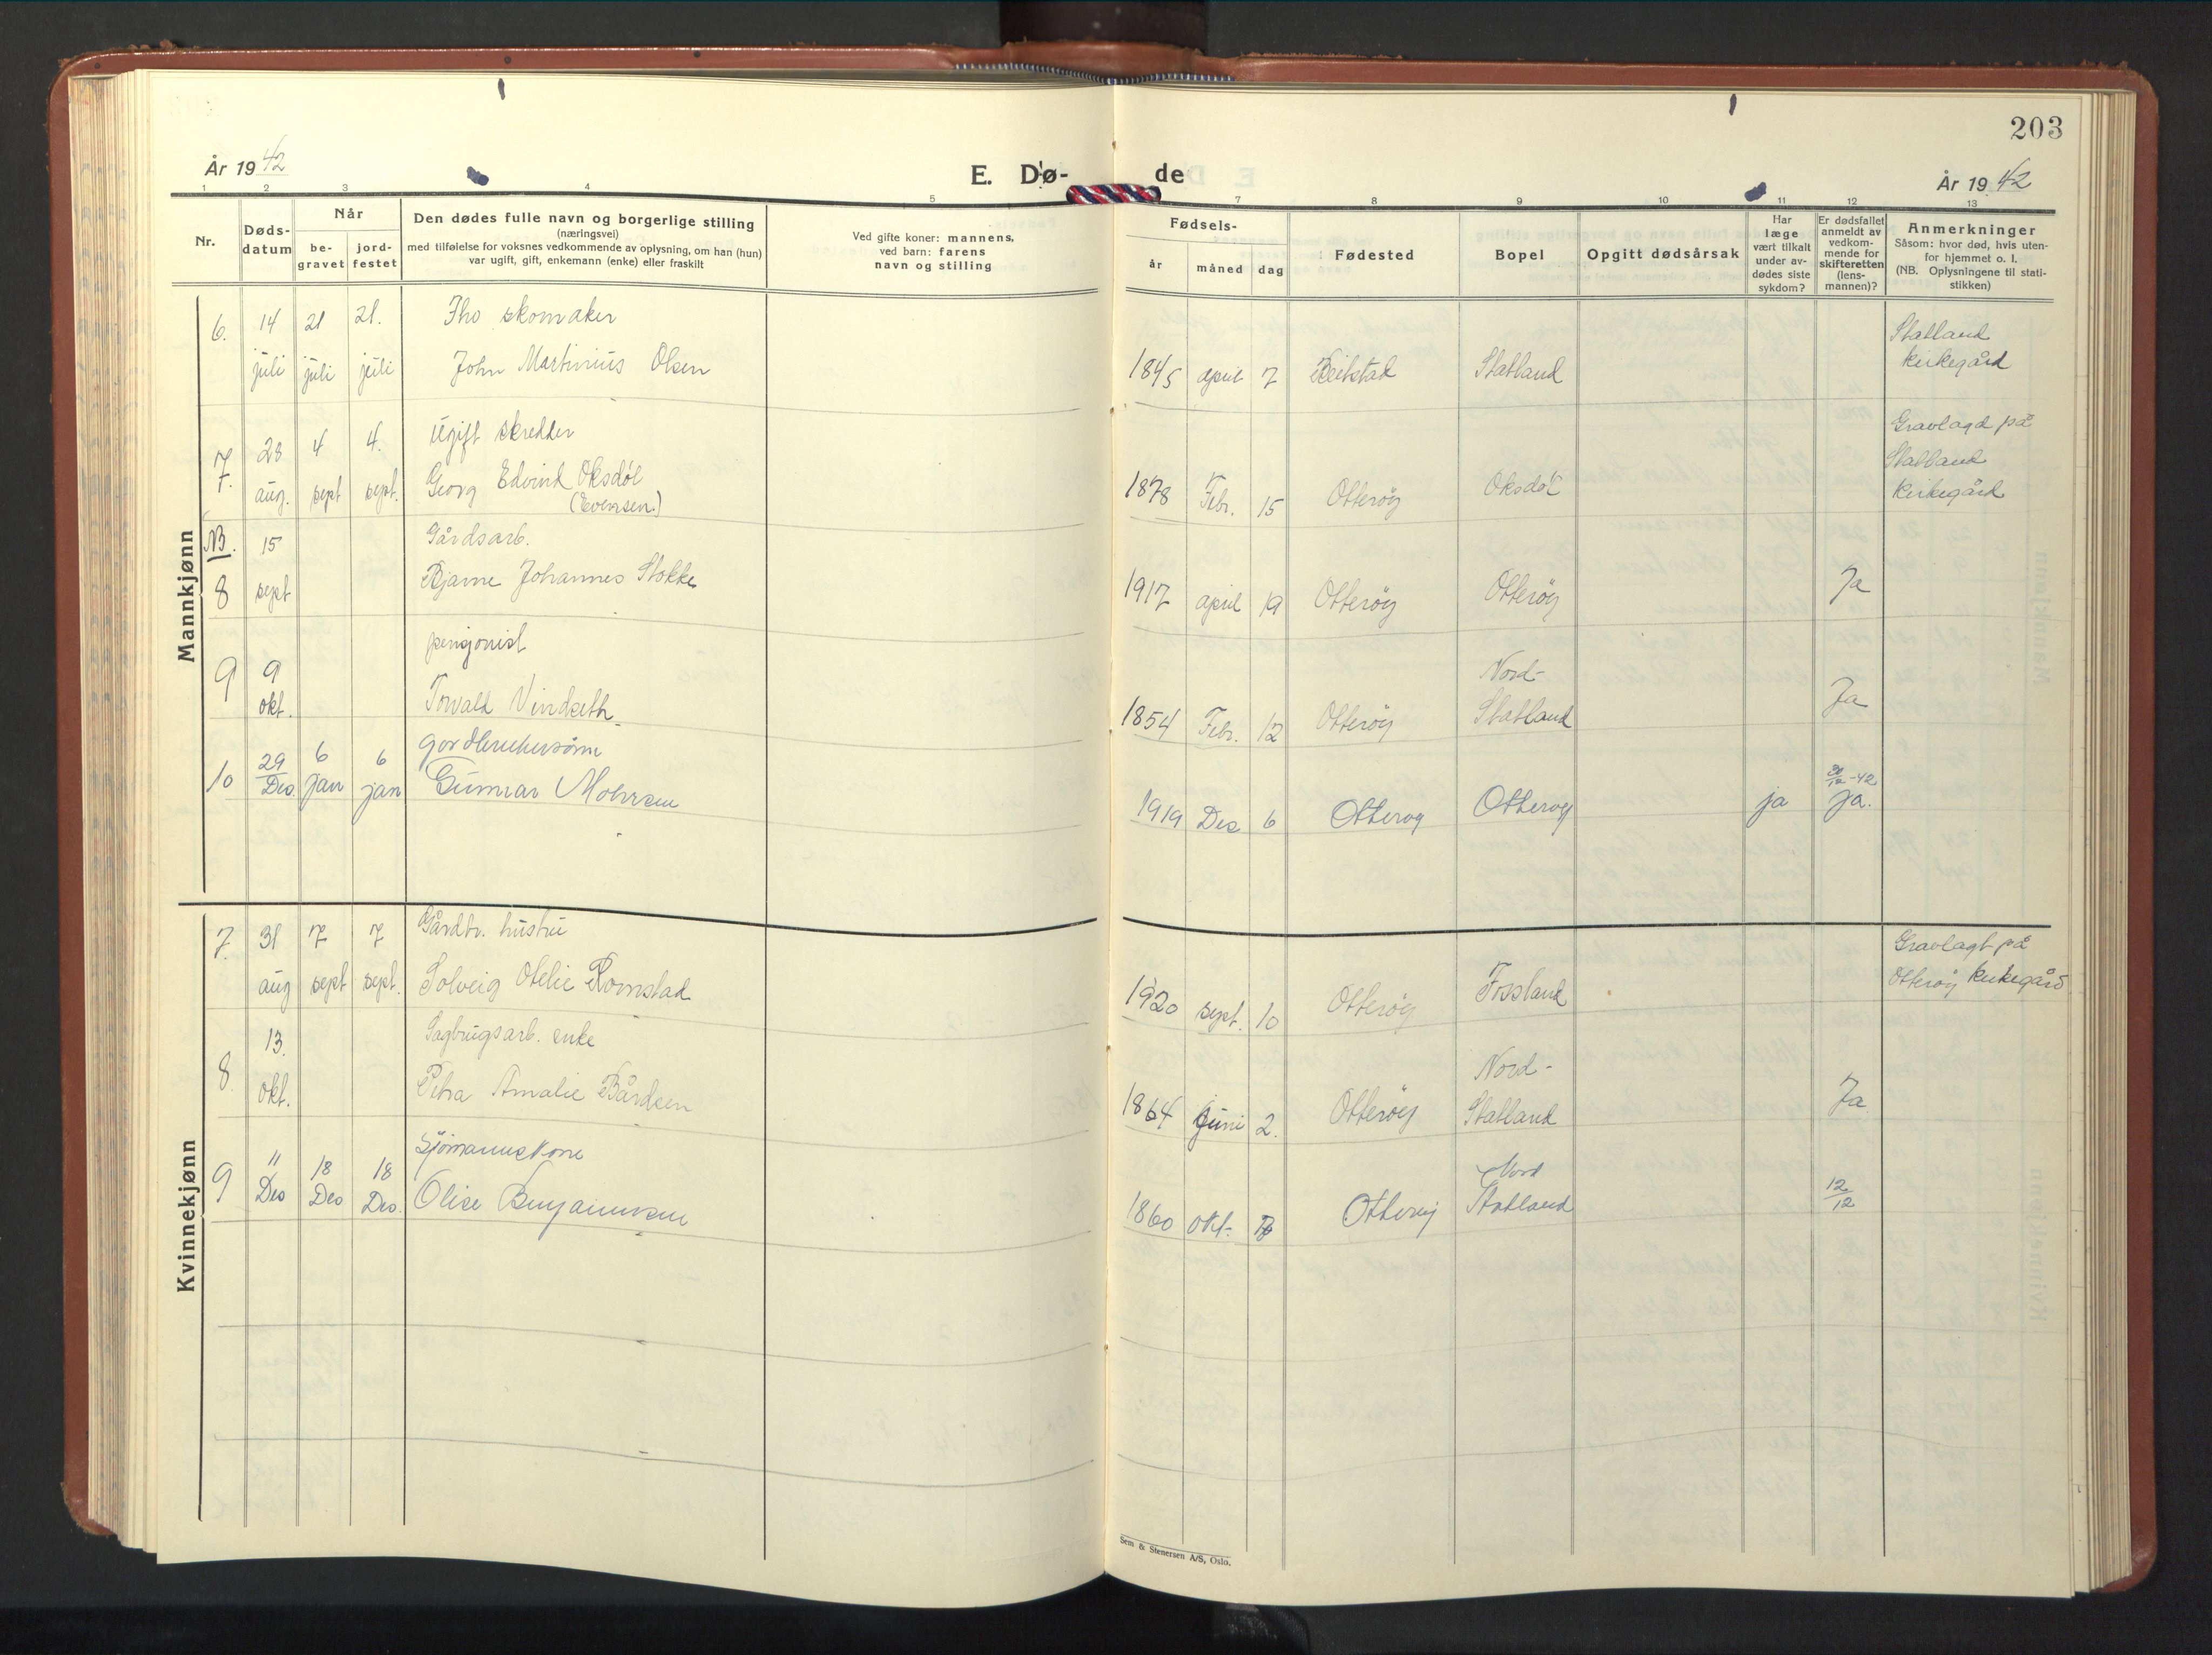 203
År 1942
E. Dø-
de
År 1942
1 2 3 4 5
7 8 9 10 11 12 13
Nr.
Døds-
datum
Når
be-
gravet
jord-
festet
Den dødes fulle navn og borgerlige stilling
(næringsvei)
med tilføielse for voksnes vedkommende av oplysning, om han (hun)
var ugift, gift, enkemann (enke) eller fraskilt
Ved gifte koner: mannens,
ved barn: farens
navn og stilling
Fødsels-
år
måned
dag
Fødested
Bopel
Opgitt dødsårsak
Har
læge
vært tilkalt
under av-
dødes siste
sykdom?
Er dødsfallet
anmeldt av
vedkom-
mende for
skifteretten
(lens-
mannen)?
Anmerkninger
Såsom: hvor død, hvis uten-
for hjemmet o. l.
(NB. Oplysningene til stati-
stikken)
Mannkjønn
6. 14 21 21. Fho skomaker
juli juli juli John Martinius Olsen
1845 april 7 Beitstad Statland
Statland
kirkegård
7 28 4 4. Ugift skredder
7. aug. sept sept. Georg Edvind Oksdøl
(Evensen)
1878 Febr. 15 Otterøy Oksdøl
Gravlagd på
Statland
kirkegård
NB. 15 Gårdsarb.
8 sept Bjarne Johannes Stokke
1917 april 19 Otterøy Otterøy Ja
pensjonist
9 9
okt. Torvald Vindseth
1854 Febr. 12 Otterøy
Nord-
Statland
Ja
10 29 6 6 gardbrukersønn
Des Jan jan Gunnar Mohrsen
1919 Des 6 Otterøy Otterøy ja
-42
ja.
Kvinnekjønn
7. 31 7 7 Gårdbr. hustru
aug sept sept. Solveig Otelie Romstad
1920 sept. 10 Otterøy Fossland
Gravlagt på
Otterøy kirkegård
13. Sagbrugsarb. enke
8. okt. Petra Amalie Bårdsen
1864 Juni 2. Otterøy
Nord-
Statland
Ja
9 11 18 18 Sjømannskone
Des Des Des. Olise Benjaminsen
1860 okt. Otterøy
Nord
Statland
12/12
Sem & Stenersen A/S, Oslo.